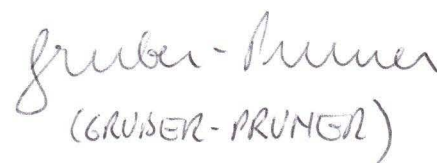 Gruber-Pruner
(GRUBER-PRUNER)